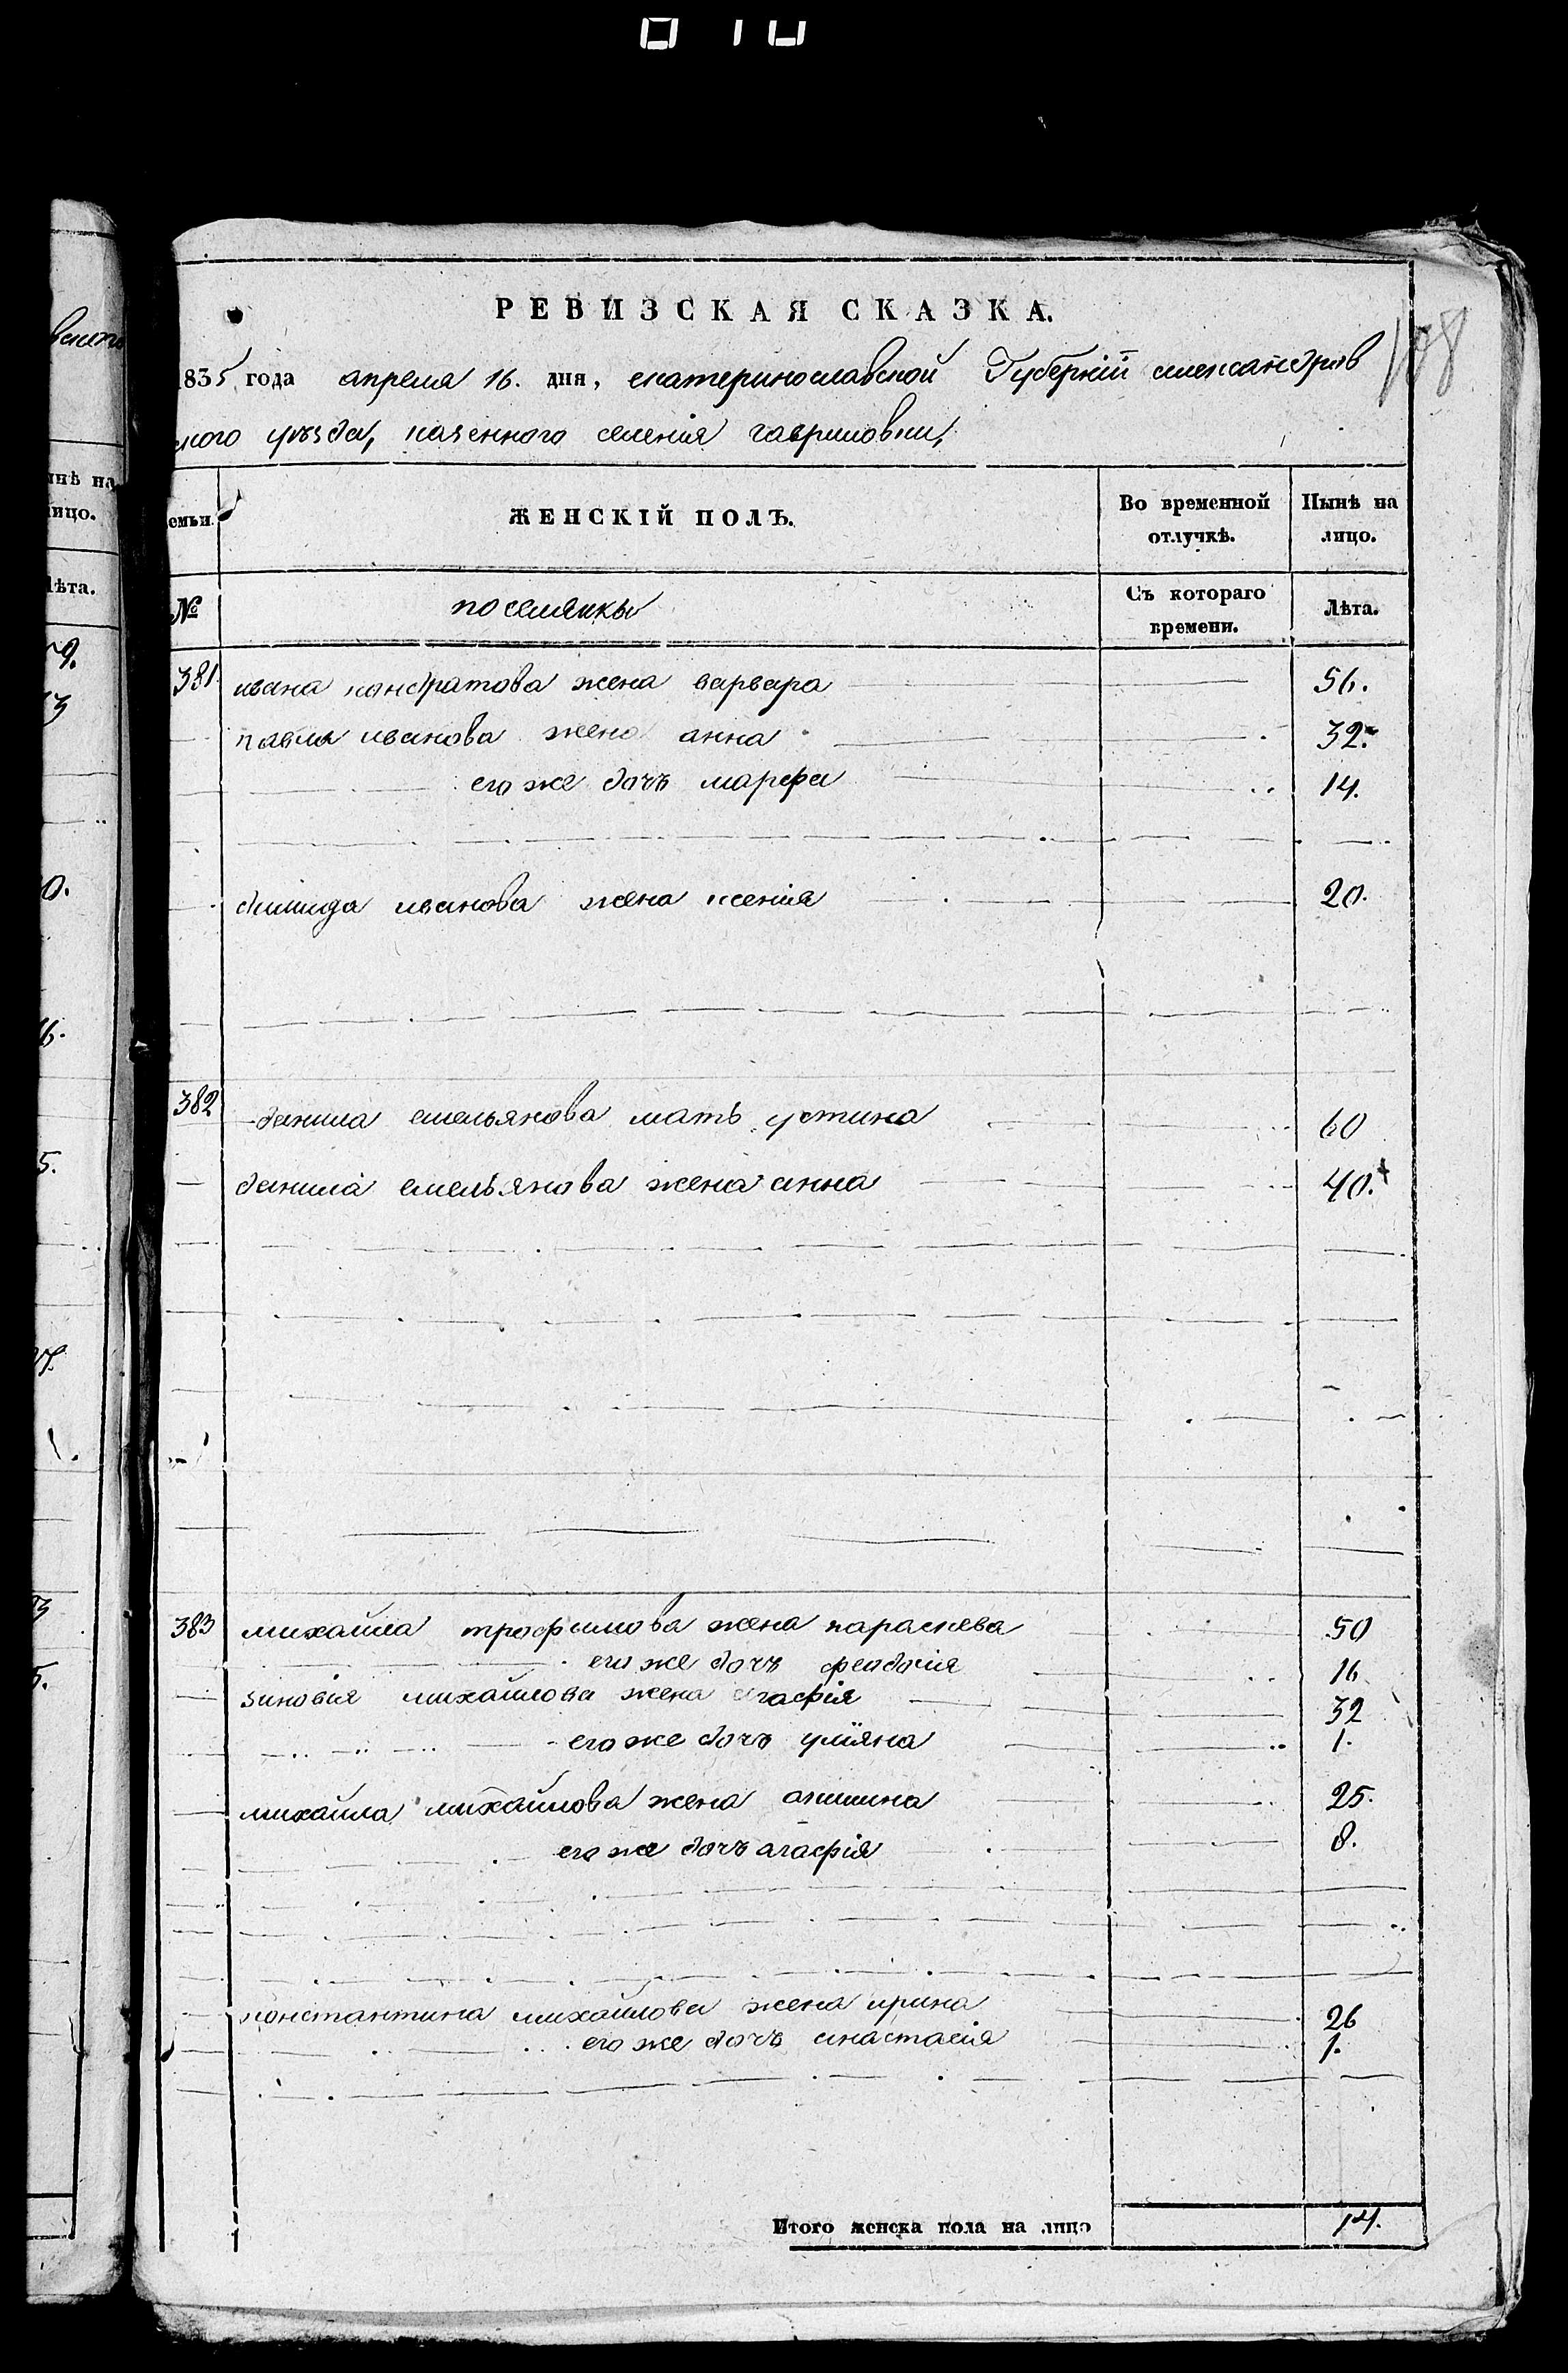 РЕВИЗСКАЯ СКАЗКА.
1835 года апреля 16. дня, екатеринославской Губернїй александров
ского уѣзда, казенного селенія гавриловки,
108
семьи.
ЖЕНСКІЙ ПОЛЪ.
Во временной отлучкѣ.
Нынѣ на лицо.
№
поселянки
Съ котораго времени.
Лѣта.
381 ивана кондратова жена варвара 56.
павла иванова жена анна 32.
его же дочь марфа 14.
иванова жена ксенія 20.
382 данила емельянова мать устина 60
данила емельянова жена анна 40.
383 михайла трофимова жена параскева 50
его же дочь феодосія 16
зиновія михайлова жена агафія 32
его же дочь улїяна 1.
михайла михайлова жена акилина 25.
его же дочь агафія 8.
константина михайлова жена ирина 26
его же дочь анастасія 1.
Итого женска пола на лицо 14.